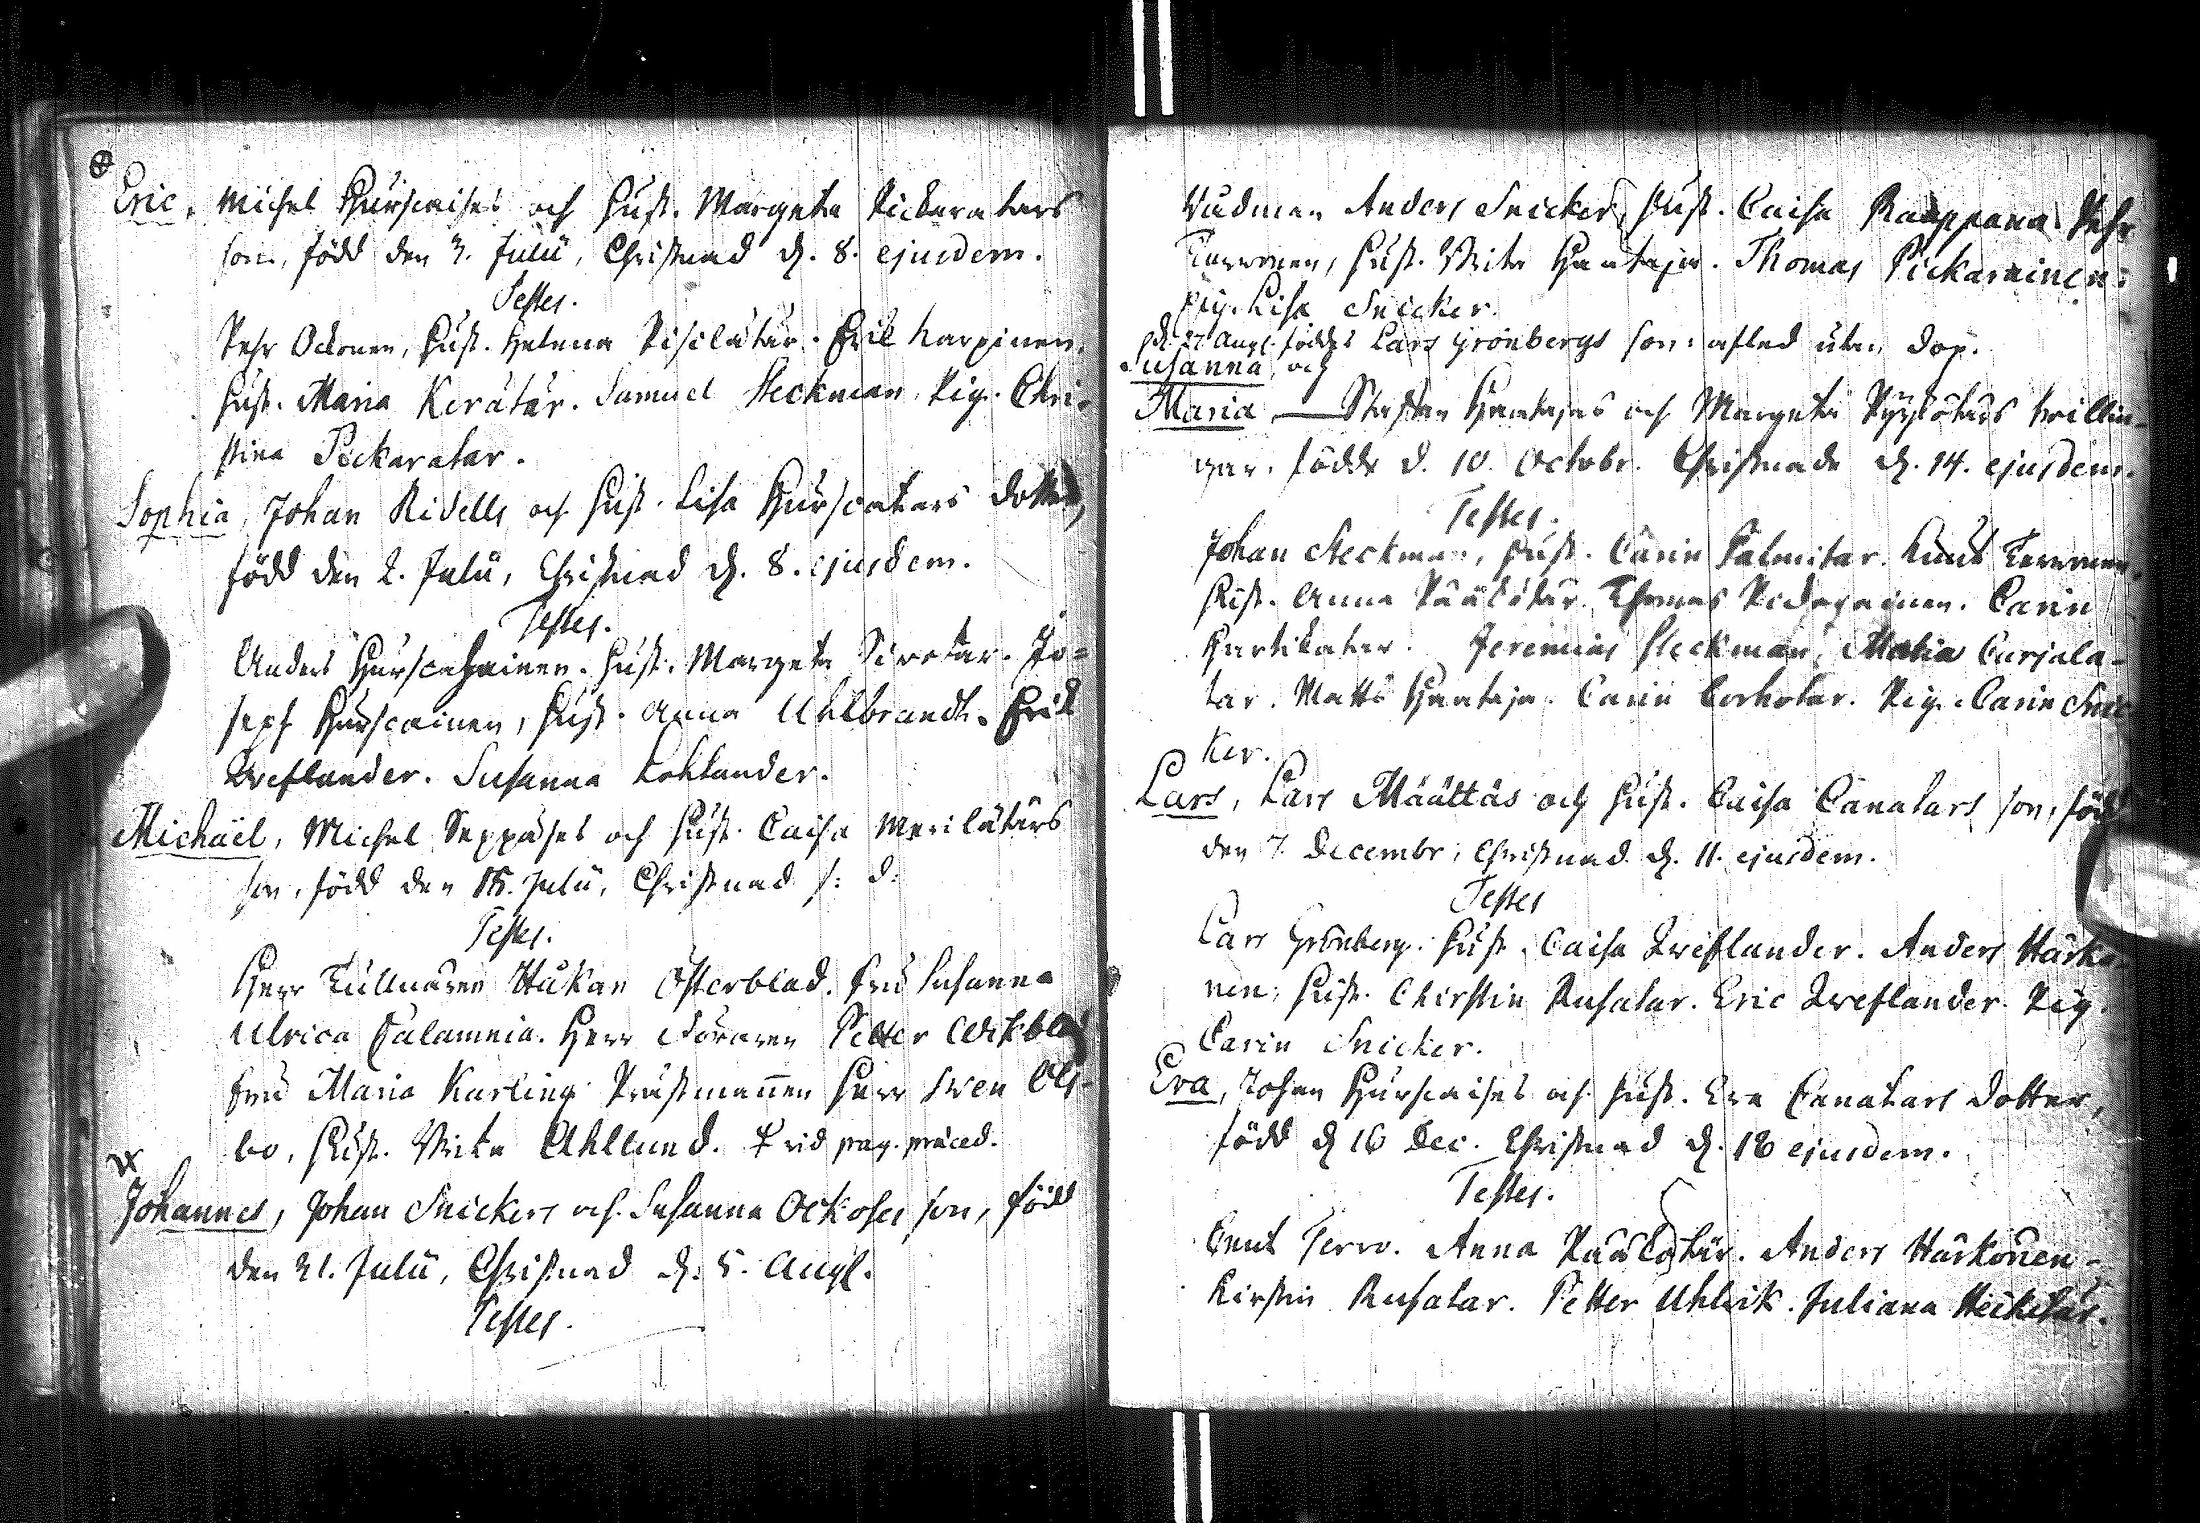 Eric, Michel Hurskaises och Hust. Margeta Pickaratars
son, född den 3. Julii, Christnad d. 8. ejusdem.
Testes.
Pehr Ockonen, Hust. Helena Erik Karpinen,
Hust. Maria Kerätär. Samuel Heckman, Pig. Chri-
stina Pickaratar.
Sophia, Johan Ridells och Hust. Lisa Hurscatars dotter,
född den 2. Julii, Christnad d. 8. ejusdem.
Testes.
Anders Hurscainen. Hust. Margeta Sirotar. Jo-
seph Hurscainen, Hust. Anna Uhlbrandt. Erik
Susanna
Michaël, Michel Seppäses och Hust. Caisa Merilätärs
son, född den Julii, Christnad s: d:
Testes.
Herr Tullnären Håkan Österblad. Fru Susanna
Ulrica Calamnia. Herr Petter
Fru Maria Karling Prästmannen Herr Sven
bo, Hust. Brita Ahllund. vid pag. præced.
Johannes, Johan Snickers och Susanna Ockoses son, född
den 21. Julii, Christnad d. 5. Aug.
Testes.
Budman Anders Snicker, Hust. Caisa Raappana. Pehr
Hust. Brita Hautaja. Thomas Pickarainen.
Pig. Lisa Snicker.
d. 27 Aug. föddes Lars Grönbergs son: afled utan dop.
Susanna, och
Maria — Staffan Hautajas och Margeta tvillin-
gar, födde d. 10. Octobr. Christnade d. 14. ejusdem.
Testes.
Johan Heckman, Hust. Carin Palmitar. Knut Tervonen,
Hust. Anna Päätötär. Thomas Carin
Jeremias Heckman, Maria Carjala-
tar. Matts Hautaja. Carin Corhotar. Pig. Carin Snic
ker.
Lars, Lars Määttäs och Hust. Caisa Canatars son, född
den 7. Decembr, Christnad d. 11. ejusdem.
Testes
Lars Grönberg. Hust. Caisa Anders Härkö-
nen, Hust. Chirstin Rusatar. Eric Pig.
Carin Snicker.
Eva, Johan Hurskaises och Hust. Eva Canatars dotter,
född d 16 Dec. Christnad d. 18 ejusdem.
Testes.
Cnut Tervo. Anna Anders Härkönen-
Kirstin Rusatar. Petter Uhlrik. Juliana